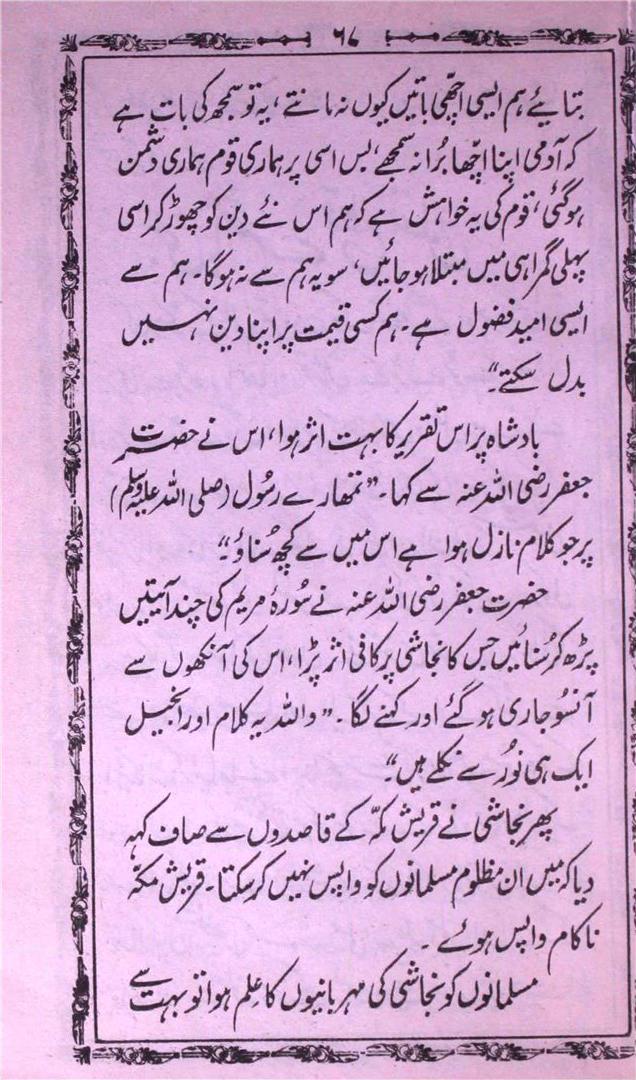 ۶۸
بتایئے ہم ایسی اچھی باتیں کیوں نہ مانتے، یہ تو سمجھ کی بات ہے
کہ آدمی اپنا اچھا بُرا نہ سمجھے، بس اسی پر ہماری قوم ہماری دشمن
ہوگئی، قوم کی یہ خواہش ہے کہ ہم اس نئے دین کو چھوڑ کر اسی
پہلی گمراہی میں مبتلا ہو جائیں، سو یہ ہم سے نہ ہوگا۔ ہم سے
ایسی امید فضول ہے۔ ہم کسی قیمت پر اپنا دین نہیں
بدل سکتے۔“
بادشاہ پر اس تقریر کا بہت اثر ہوا، اس نے حضرت
جعفر رضی اللہ عنہ سے کہا۔ ”تمھارے رسُول (صلی اللہ علیہ وسلم)
پر جو کلام نازل ہوا ہے اس میں سے کچھ سُناؤ“؛
حضرت جعفر رضی اللہ عنہ نے سُورۂ مریم کی چند آیتیں
پڑھ کر سُنائیں جس کا نجاشی پر کافی اثر پڑا، اس کی آنکھوں سے
آنسُو جاری ہو گئے اور کہنے لگا۔ ”واللہ یہ کلام اور انجیل
ایک ہی نوُر سے نکلے ہیں“
پھر نجاشی نے قریش مکّہ کے قاصدوں سے صاف کہہ
دیا کہ میں ان مظلوم مسلمانوں کو واپس نہیں کر سکتا۔ قریش مکّہ
ناکام واپس ہوئے۔
مسلمانوں کو نجاشی کی مہربانیوں کا عِلم ہوا تو بہت سے